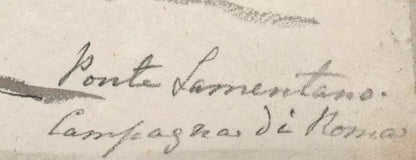 Ponte Lamentano.
Campagna di Roma